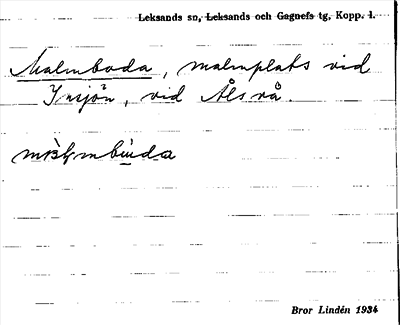 Leksands sn, Leksands och Gagnefs tg, Kopp. l.
Malmboda, malmplats vid
Insjön, vid Ålsvå.
Bror Lindén 1934